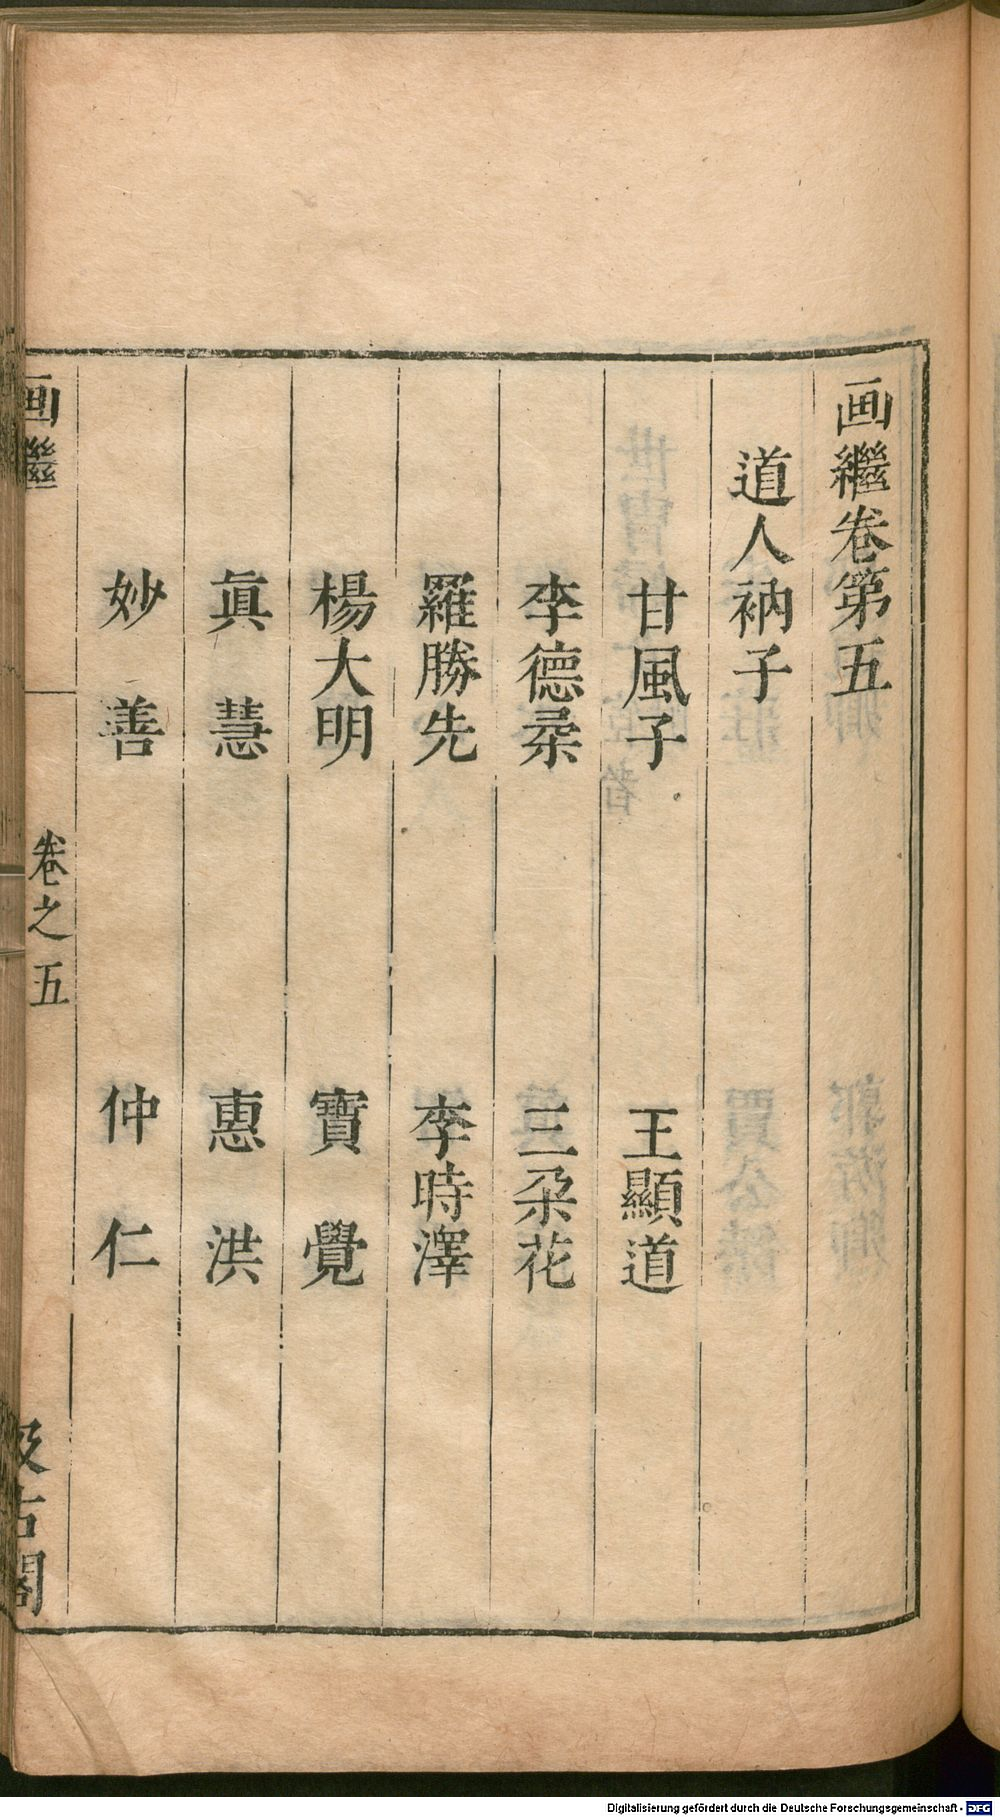 画繼卷第五
道人衲子
甘風子 王顯道
李德柔 三朶花
羅勝先 李時澤
楊大明 寶覺
眞慧 惠洪
妙善 仲仁
画繼 卷之五 汲古閣
Digitalisierung gefördert durch die Deutsche Forschungsgemeinschaft - DFG